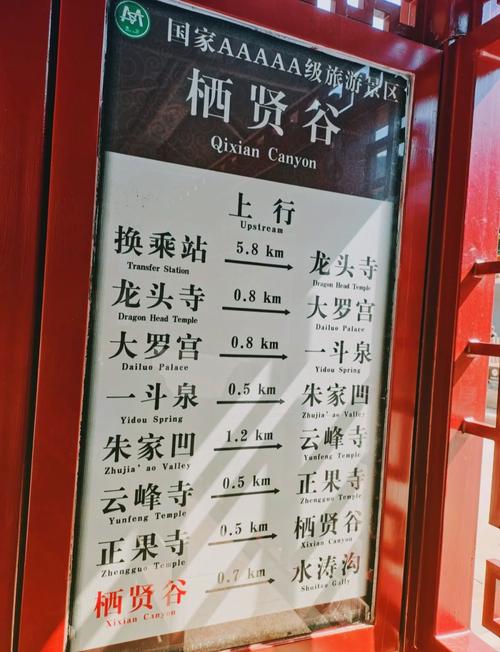 国家AAAAA级旅游景区
栖贤谷
Qixian Canyon
上行
Upstream
换乘站 5.8 km 龙头寺
Transfer Station Dragon Head Temple
龙头寺 0.8 km 大罗宫
Dragon Head Temple Dailuo Palace
大罗宫 0.8 km 一斗泉
Dailuo Palace Yidou Spring
一斗泉 0.5 km 朱家凹
Yidou Spring Zhujia'ao Valley
朱家凹 1.2 km 云峰寺
Zhujia'ao Valley Yunfeng Temple
云峰寺 0.5 km 正果寺
Yunfeng Temple Zhengguo Temple
正果寺 0.5 km 栖贤谷
Zhengguo Temple Xixian Canyon
栖贤谷 0.7 km 水涛沟
Xixian Canyon Shuitao Gully